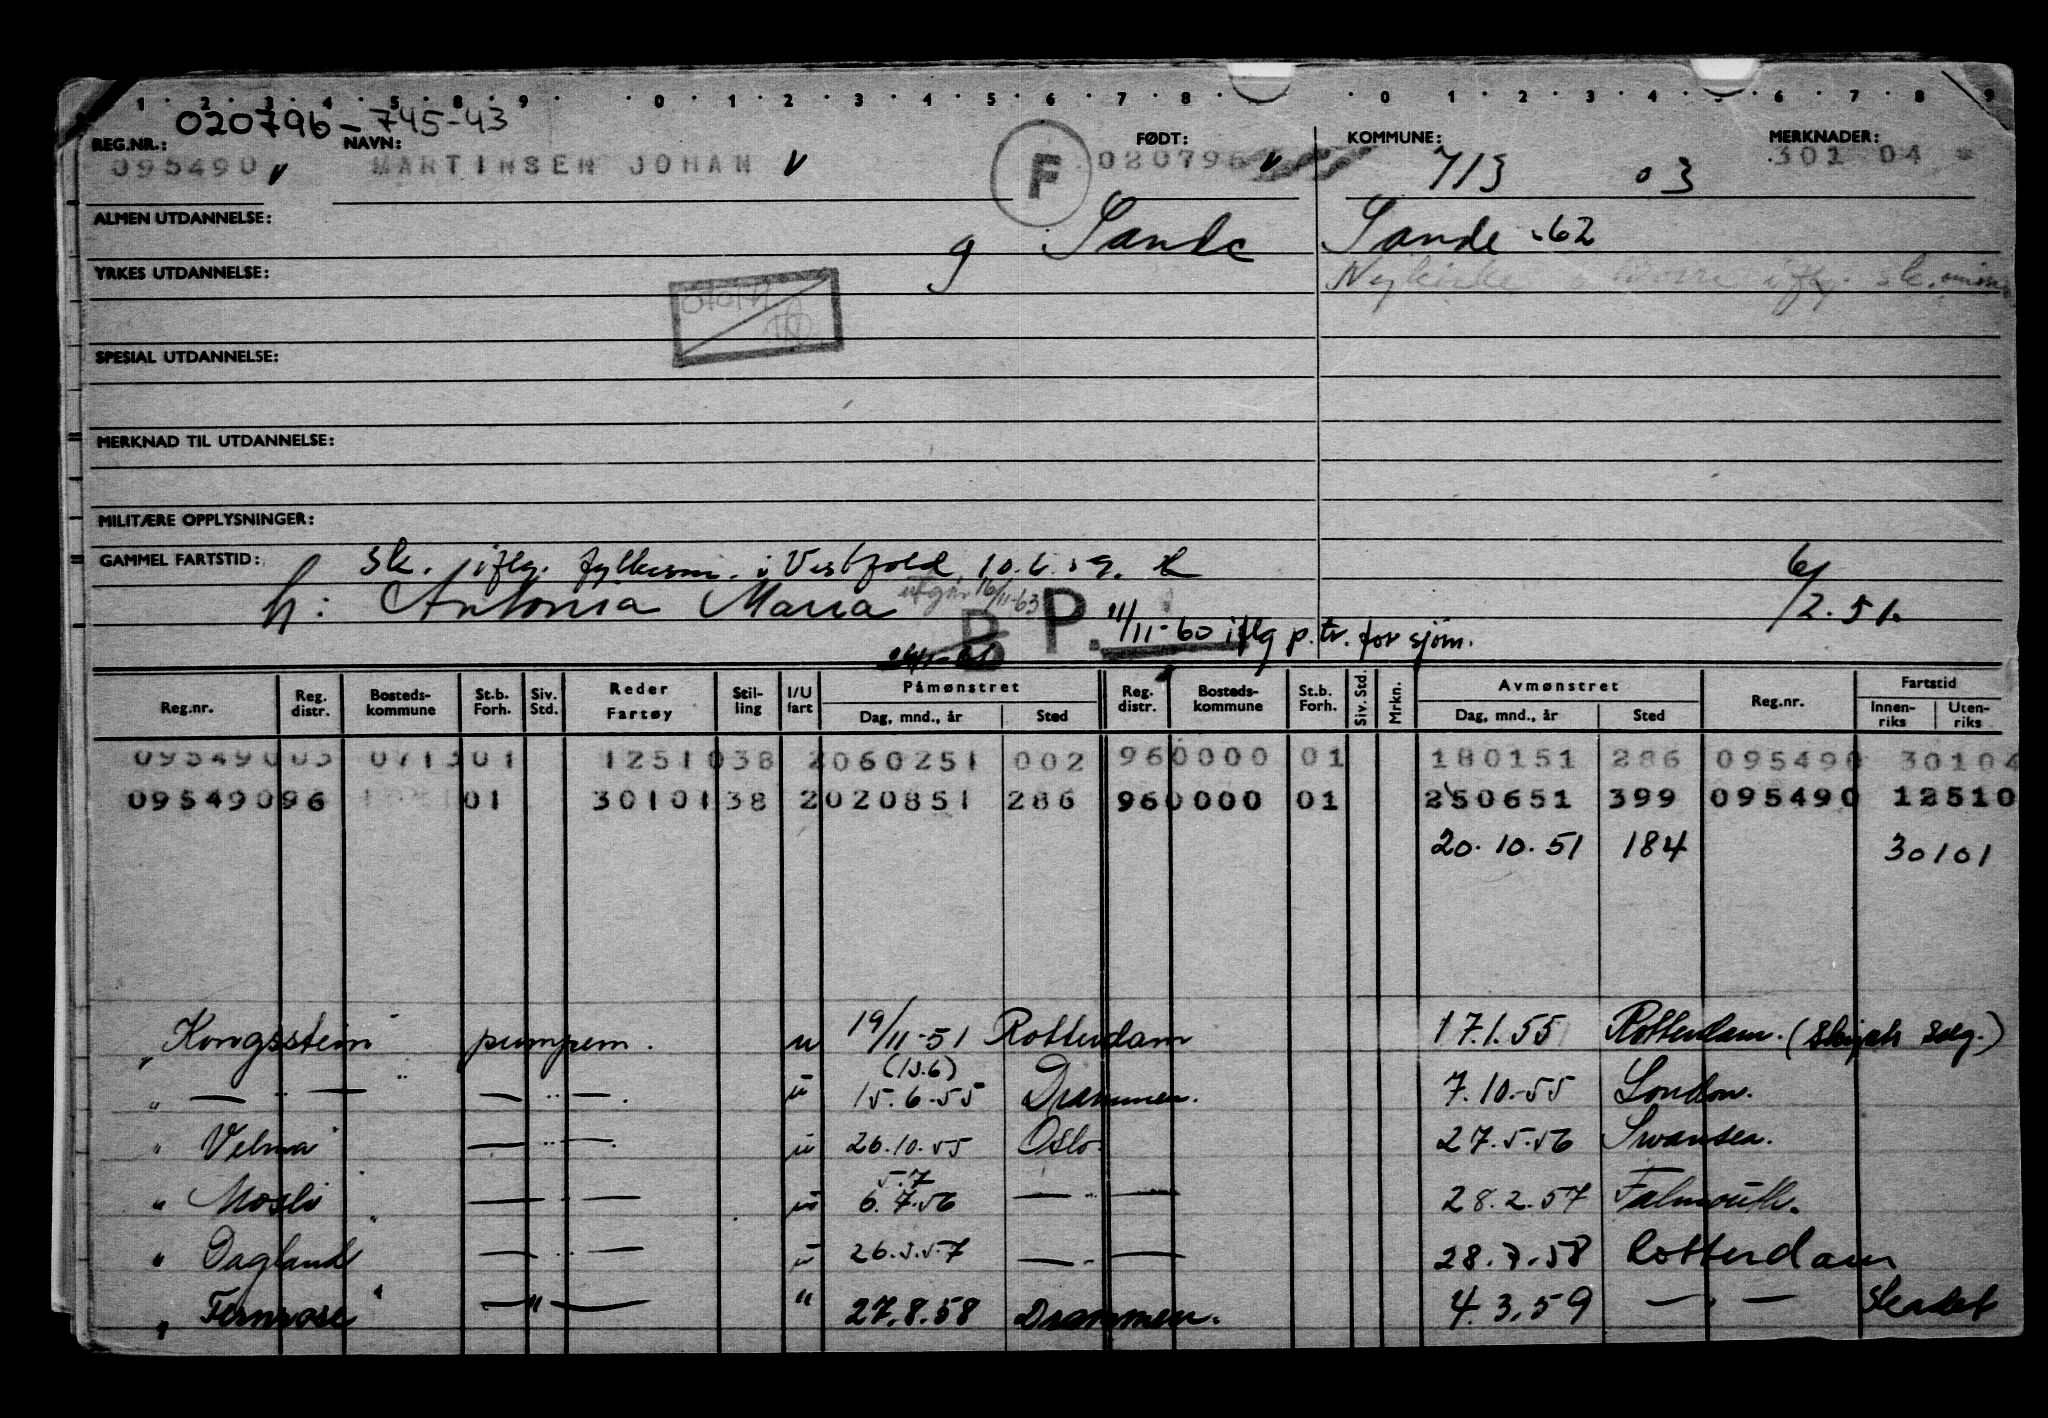 1 2 3 4 5 8 9 0 1 2 3 4 5 6 7 8 0 1 2 3 4 5 6 7 8 9
020796-745-43
REG.NR.: NAVN: FØDT: KOMMUNE: MERKNADER:
095490 v MARTINSEN JOHAN v F 020796 v 713 03 301 04
ALMEN UTDANNELSE: g Sande Sande .62
YRKES UTDANNELSE: Nykirke
SPESIAL UTDANNELSE:
MERKNAD TIL UTDANNELSE:
MILITÆRE OPPLYSNINGER:
GAMMEL FARTSTID: sk. iflg. fylkesm. i Vestfold 10.6.59.
h: Antonia Maria utgår 16/11-63 6/2.51.
P. 11/11-60 iflg p.tr. for sjøm.
Reg.nr. Reg. distr. Bosteds-kommune St.b. Forh. Siv. Std. Reder Fartøy Stil-ling I/U fart Påmønstret Dag, mnd., år Sted Reg. distr. Bosteds-kommune St.b. Forh. Siv. Std. Mrkn. Avmønstret Dag, mnd., år Sted Reg.nr. Fartstid Innen-riks Uten-riks
09549003 071301 1251038 2060251 002 960000 01 180151 286 095490 30104
09549096 01 3010138 2020851 286 960000 01 250651 399 095490 12510
20.10.51 184 30101
" Kongsstein " pumpem. u 19/11-51 Rotterdam 17.1.55 Rotterdam. (Skipets salg.)
(15.6)
" — " — — " — . u 15.6.55 Drammen. 7.10.-55 London.
" Velma " — " — u 26.10.55 Oslo. 27.5.56 Swansea.
5.7
" Mosli " — " — u 6.7.56 — " — 28.2.57 Falmouth.
" Dagland " — " — u 26.5.57 — " — 28.7.58 Rotterdam
" Fernrose " — " — " 27.8.58 Drammen. 4.3.59 — " — skadet